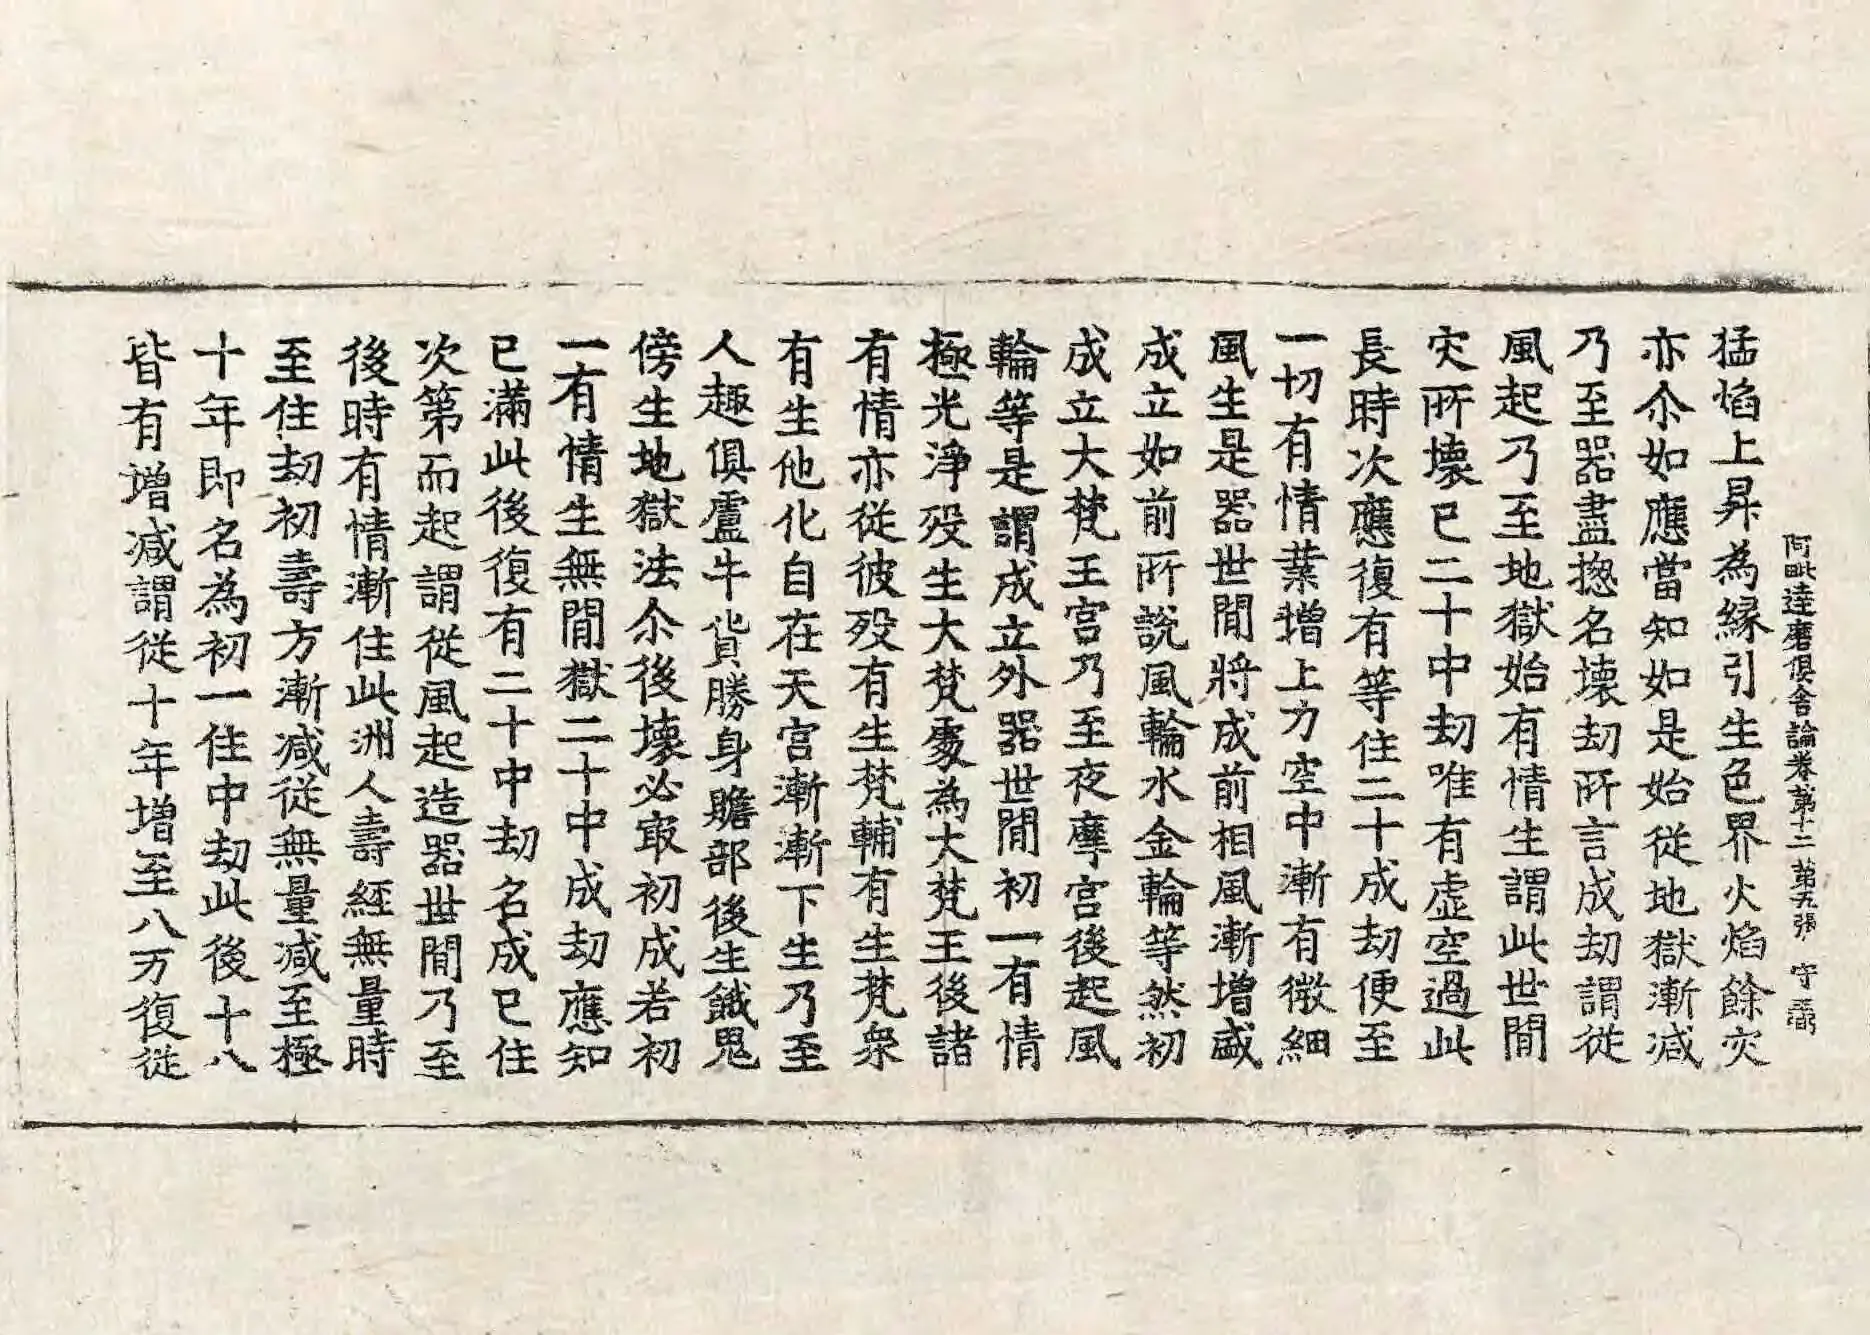 阿毗達磨俱舍論卷第十二 第九張 守
猛焰上昇為緣引生色界火焰餘灾
亦尒如應當知如是始從地獄漸減
乃至器盡揔名壞劫所言成劫謂從
風起乃至地獄始有情生謂此世間
灾所壞已二十中劫唯有虛空過此
長時次應復有等住二十成劫便至
一切有情業增上力空中漸有微細
風生是器世間將成前相風漸增盛
成立如前所說風輪水金輪等然初
成立大梵王宮乃至夜摩宮後起風
輪等是謂成立外器世間初一有情
極光淨歿生大梵處為大梵王後諸
有情亦從彼歿有生梵輔有生梵衆
有生他化自在天宮漸漸下生乃至
人趣俱盧牛貨勝身贍部後生餓鬼
傍生地獄法尒後壞必㝡初成若初
一有情生無間獄二十中成劫應知
已滿此後復有二十中劫名成已住
次第而起謂從風起造器世間乃至
後時有情漸住此洲人壽經無量時
至住劫初壽方漸減從無量減至極
十年即名為初一住中劫此後十八
皆有增減謂從十年增至八万復從